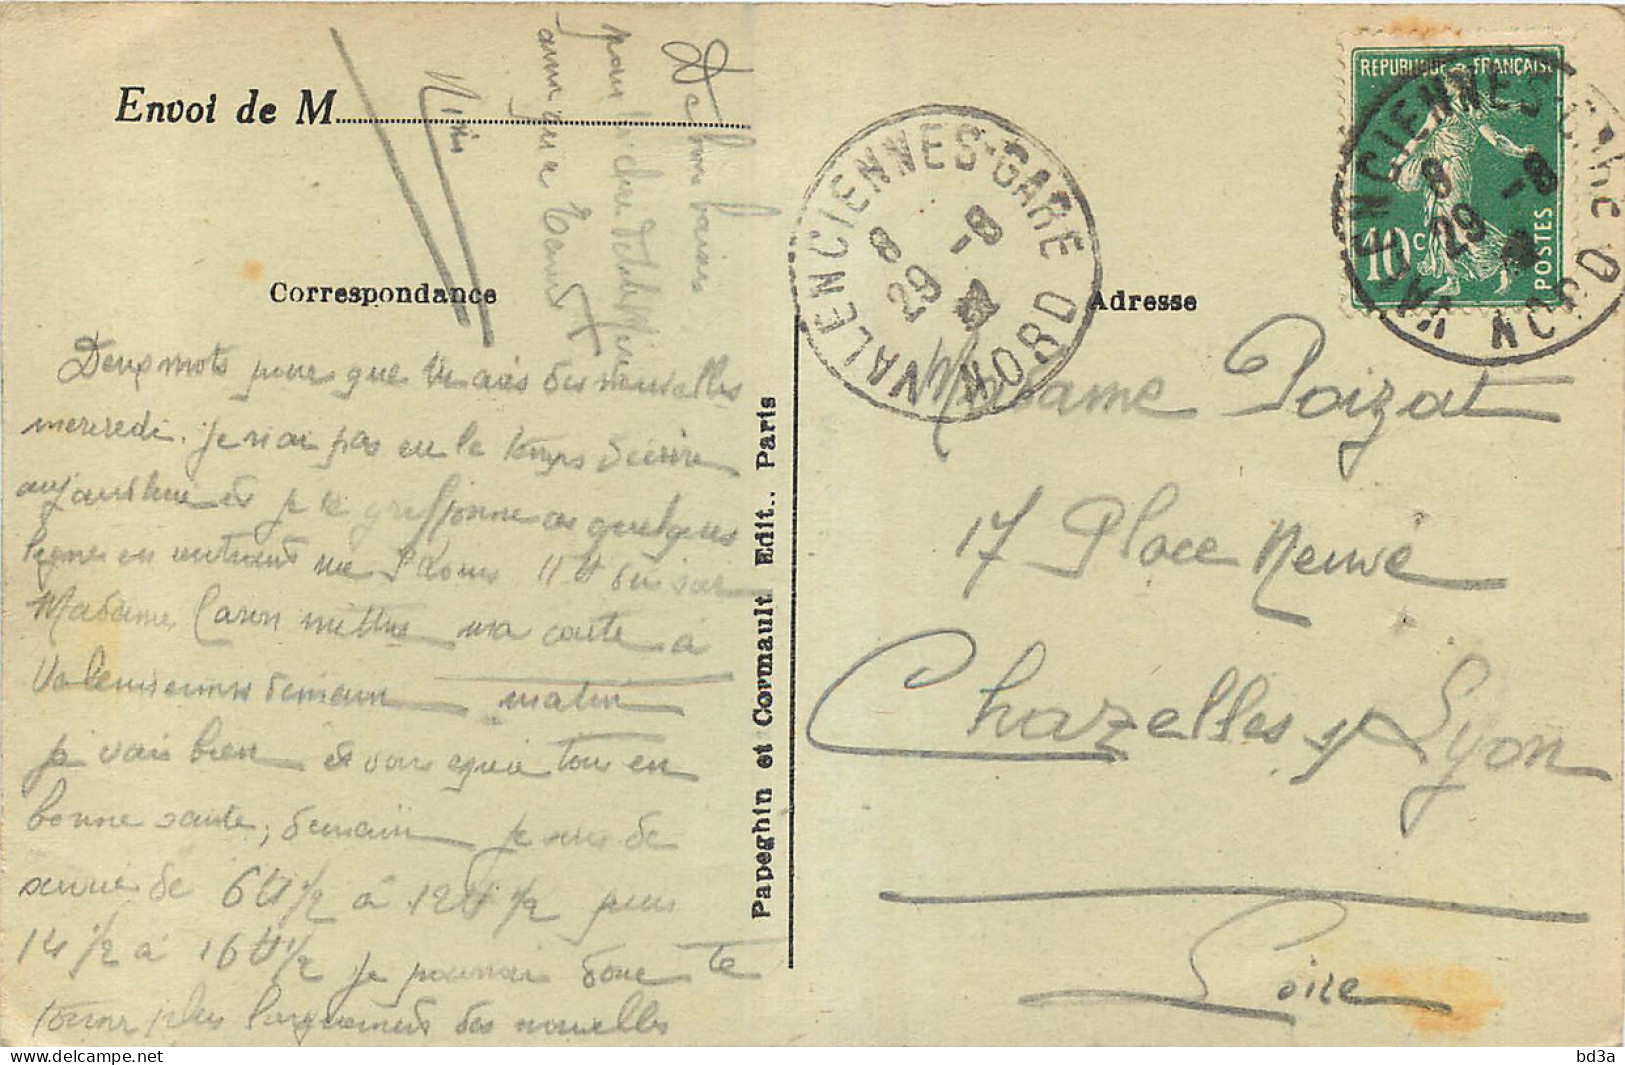 Envoi de M
Correspondance
Adresse
Deux mots pour que tu aies des nouvelles
mercredi. je n'ai pas eu le temps d'écrire
aujourd'hui et je te griffonne ces quelques
lignes en rentrant
Madame Caron mettre ma carte à
Valenciennes demain matin
je vais bien et vous espère tous en
bonne santé, demain je suis de
service de 6H 1/2 à 12H 1/2 puis
14 1/2 à 16H 1/2 je pourrai donc te
donner plus longuement des nouvelles
De bons baisers
pour
Ninis
Papeghin et Cormault Edit.. Paris
VALENCIENNES-GARE
NORD
8
29 -8
REPUBLIQUE FRANÇAISE
10c
POSTES
VALENCIENNES-GARE
NORD
8
29 -8
Madame Poizat
17 Place Neuve
Chazelles s/ Lyon
Loire
bd3a